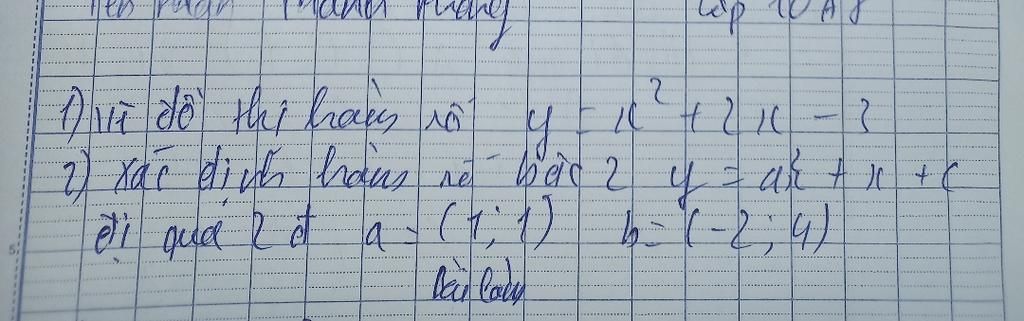 Lớp 10A8
1) vẽ đồ thị hàm số y = x² + 2x - 3
2) xác định hàm số bậc 2 y = ax² + x + c
đi qua 2 đ a = (1; 1) b = (-2; 4)
Bài làm